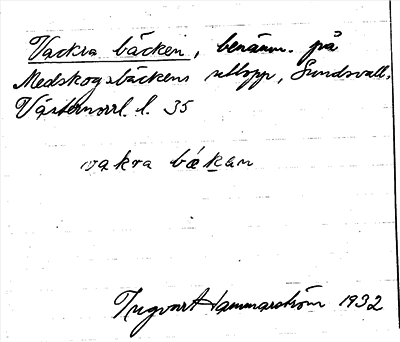 Vackra bäcken, benämn. på
Medskogsbäckens utlopp, Sundsvall,
Västernorrl. l. 35
vakra bækan
Ingvart Hammarström 1932